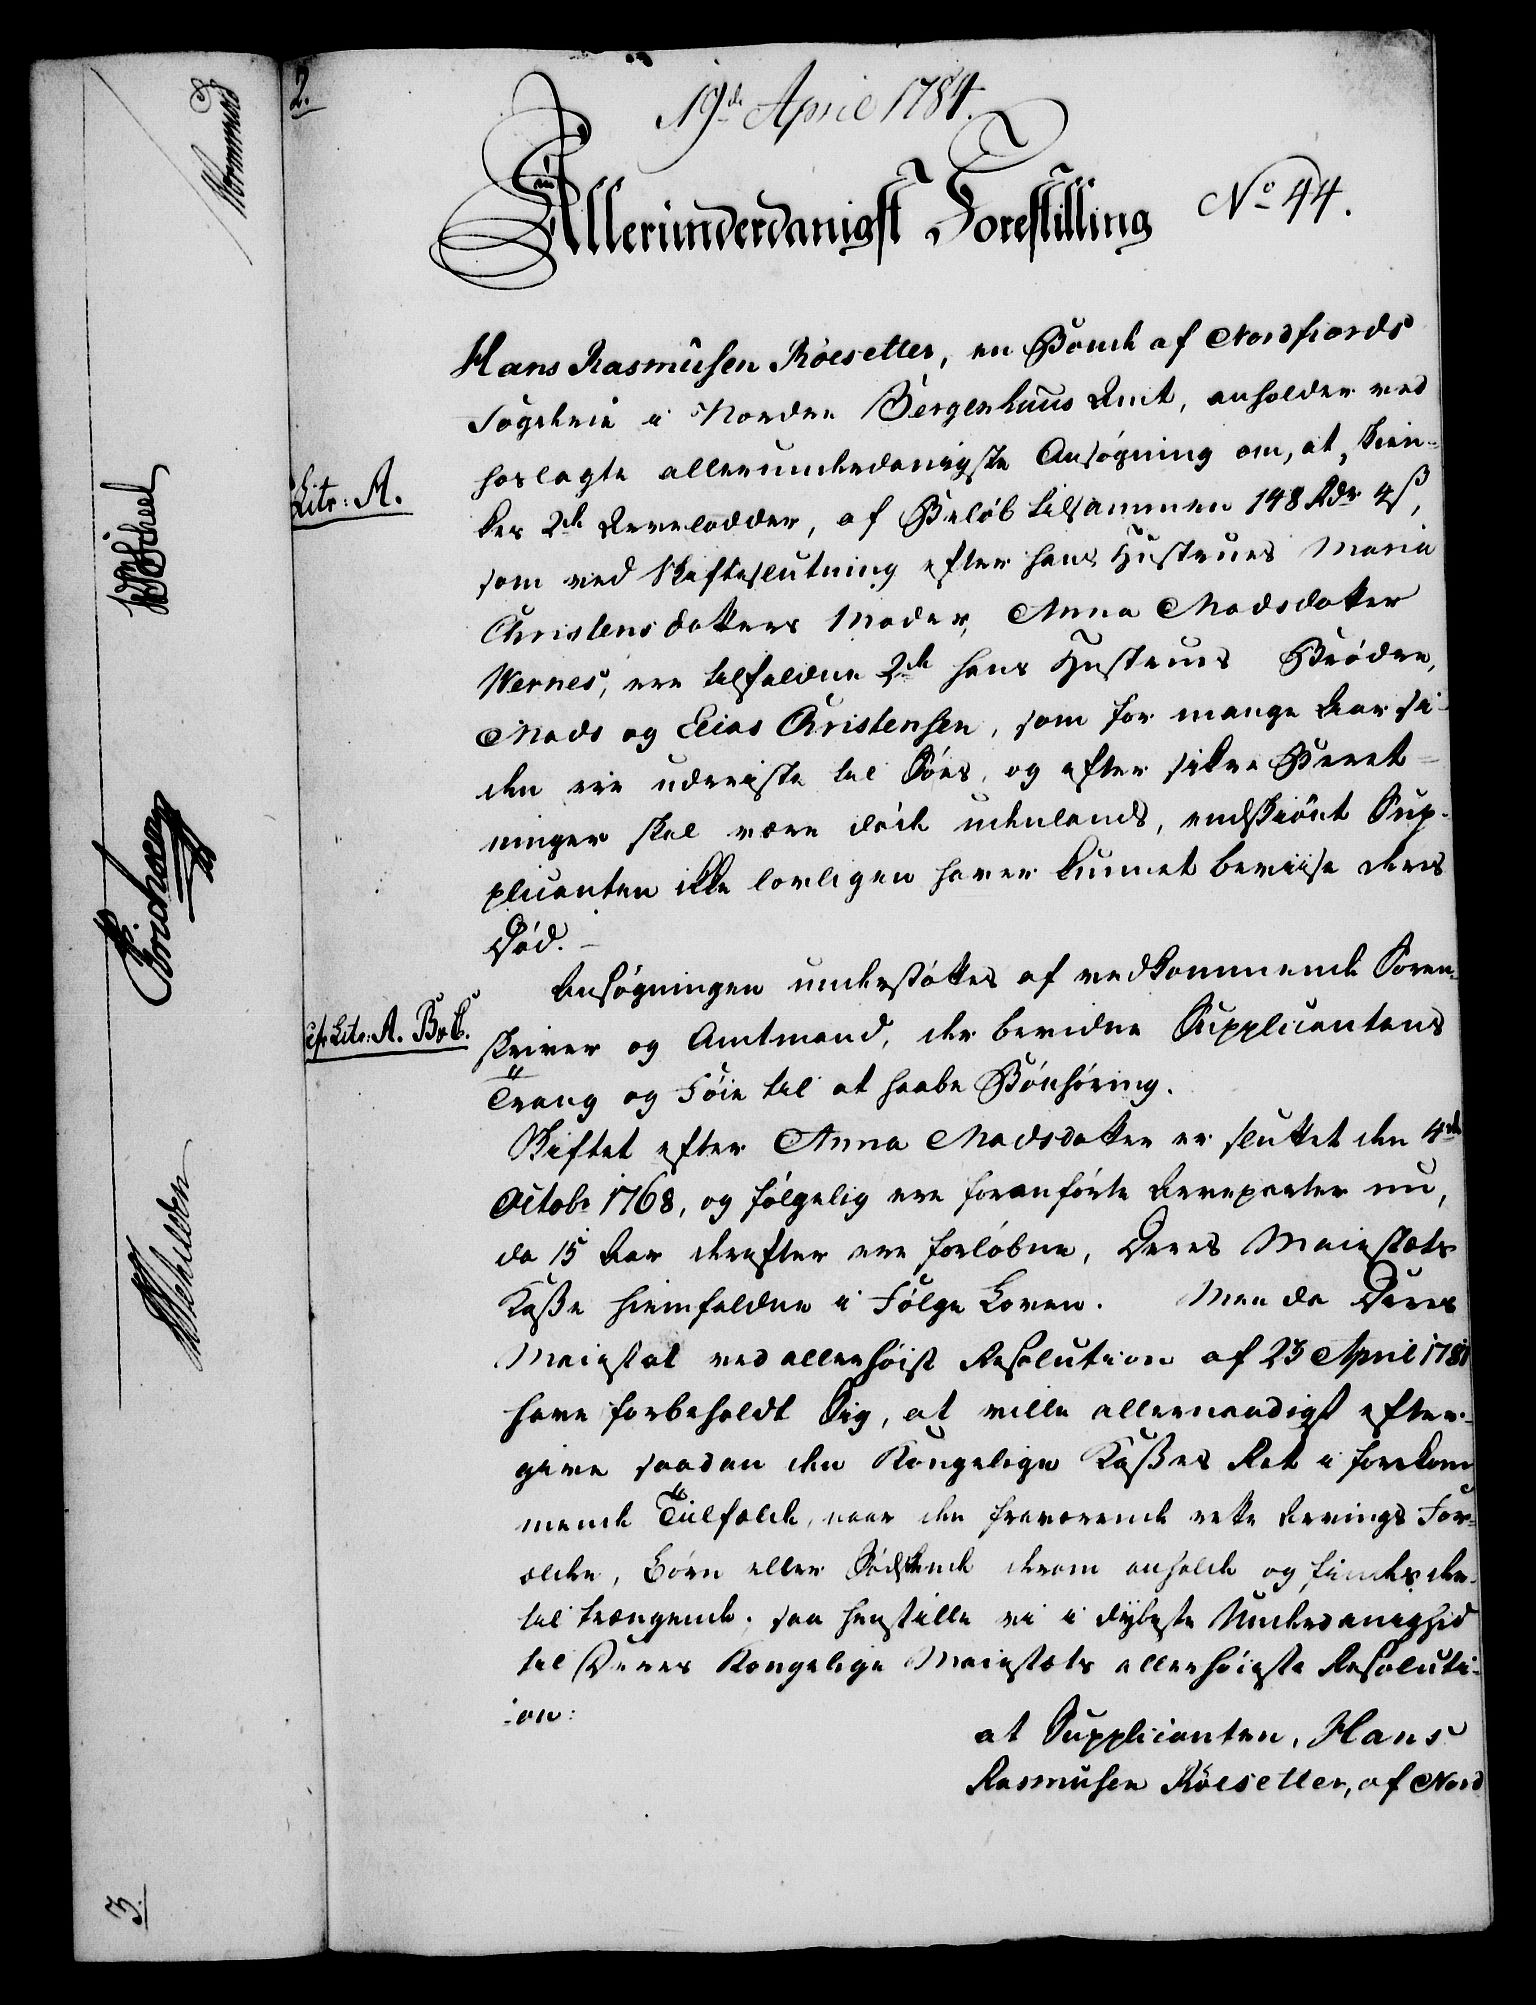 2.
19de April 1784.
Allerunderdanigst Forestilling No 44.
Hans Rasmusen Röesetter, en Bonde af Nordfiords
Fogderie i Nordre Bergenhuus Amt, anholder ved
Litr: A.
hoslagte allerunderdanigste Ansögning om, at skien-
kes 2de Arvelodder, af Belöb tilsammen 148 Rdr 4 ß,
som ved Skifteslutning efter hans Hustrues Maria
Christensdatters Moder, Anna Madsdatter
Wernes, ere tilfaldne 2de hans Hustrues Brödre,
Mads og Elias Christensen, som for mange Aar si-
den ere udreiste til Söes, og efter sikre Beret-
ninger skal være döde udenlands, endskiönt Sup-
plicanten ikke lovligen haver kunnet beviise deres
Död.
Ansögningen understöttes af vedkommende Soren-
cfr Litr: A. B & C.
skriver og Amtmand, der bevidne Supplicantens
Trang og Föie til at haabe Bönhöring.
Skiftet efter Anna Madsdatter er sluttet den 4de
Octobr 1768, og fölgelig ere foranförte Arveparter nu,
da 15 Aar derefter ere forlöbne, Deres Maiestæts
Kaße hiemfaldne i Fölge Loven. Men da Deres
Maiestæt ved allerhöist Resolution af 23 April 1781
have forbeholdt Sig, at ville allernaadigst efter-
give saadan den Kongelige Kaßes Ret i forekom
mende Tilfælde, naar den fraværende rette Arvings For-
ældre, Börn eller Södskende derom anholde og findes der-
til trængende; saa henstille vi i dybeste Underdanighed
til Deres Kongelige Maiestæts allerhöieste Resoluti-
-on:
at Supplicanten, Hans
Rasmusen Röesetter, af Nord
Wormskiold
Erichsen
3.